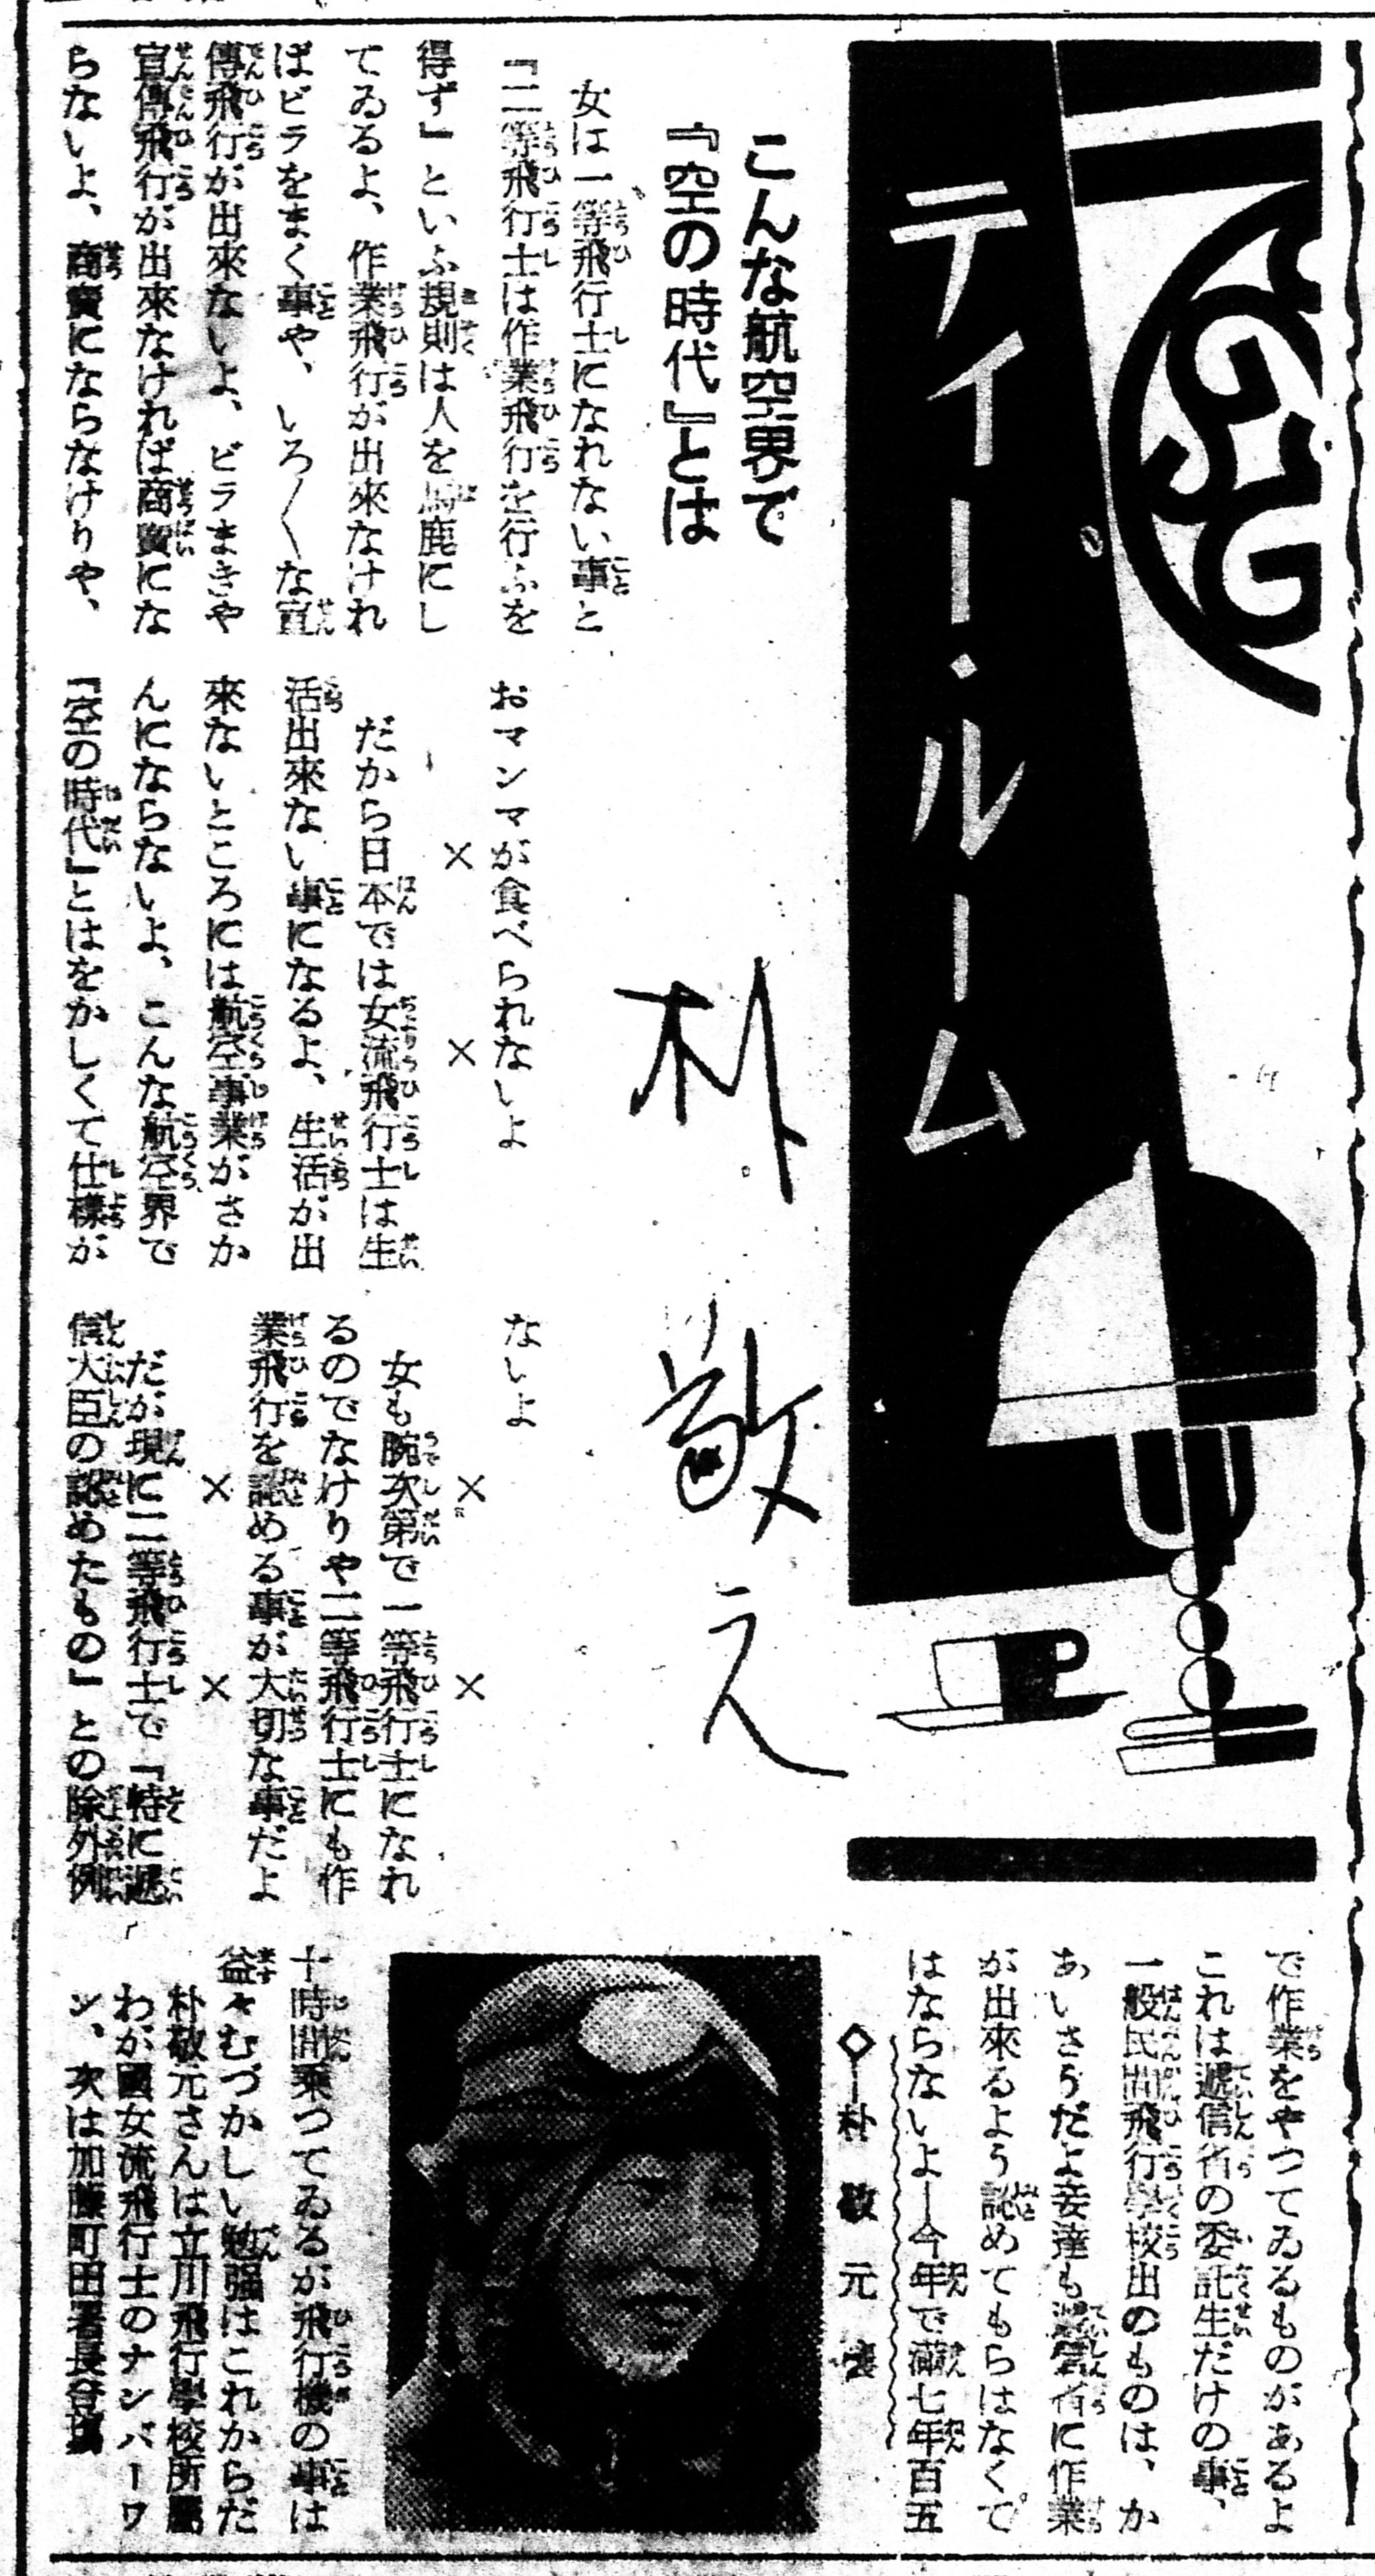 ティー・ルーム
こんな航空界で
『空の時代』とは
女は一等飛行士になれない事と
『二等飛行士は作業飛行を行ふを
得ず』といふ規則は人を馬鹿にし
てゐるよ、作業飛行が出來なけれ
ばビラをまく事や、いろ〳〵な宣
傳飛行が出來ないよ、ビラまきや
宣傳飛行が出來なければ商賣にな
らないよ、商賣にならなけりや、
おマンマが食べられないよ
× ×
だから日本では女流飛行士は生
活出來ない事になるよ、生活が出
來ないところには航空事業がさか
んにならないよ、こんな航空界で
『空の時代』とはをかしくて仕樣が
ないよ
× ×
女も腕次第で一等飛行士になれ
るのでなけりや二等飛行士にも作
業飛行を認める事が大切な事だよ
× ×
だが現に二等飛行士で『特に遞
信大臣の認めたもの』との除外例
で作業をやつてゐるものがあるよ
これは遞信省の委託生だけの事、
一般民間飛行學校出のものは、か
あいさうだよ妾達も遞信省に作業
が出來るよう認めてもらはなくて
はならないよ―今年で滿七年百五
十時間乘つてゐるが飛行機の事は
益々むづかしい勉强はこれからだ
◇―朴敬元孃
朴敬元さんは立川飛行學校所屬
わが國女流飛行士のナンバーワ
ン、次は加藤町田署長登場
朴敬元